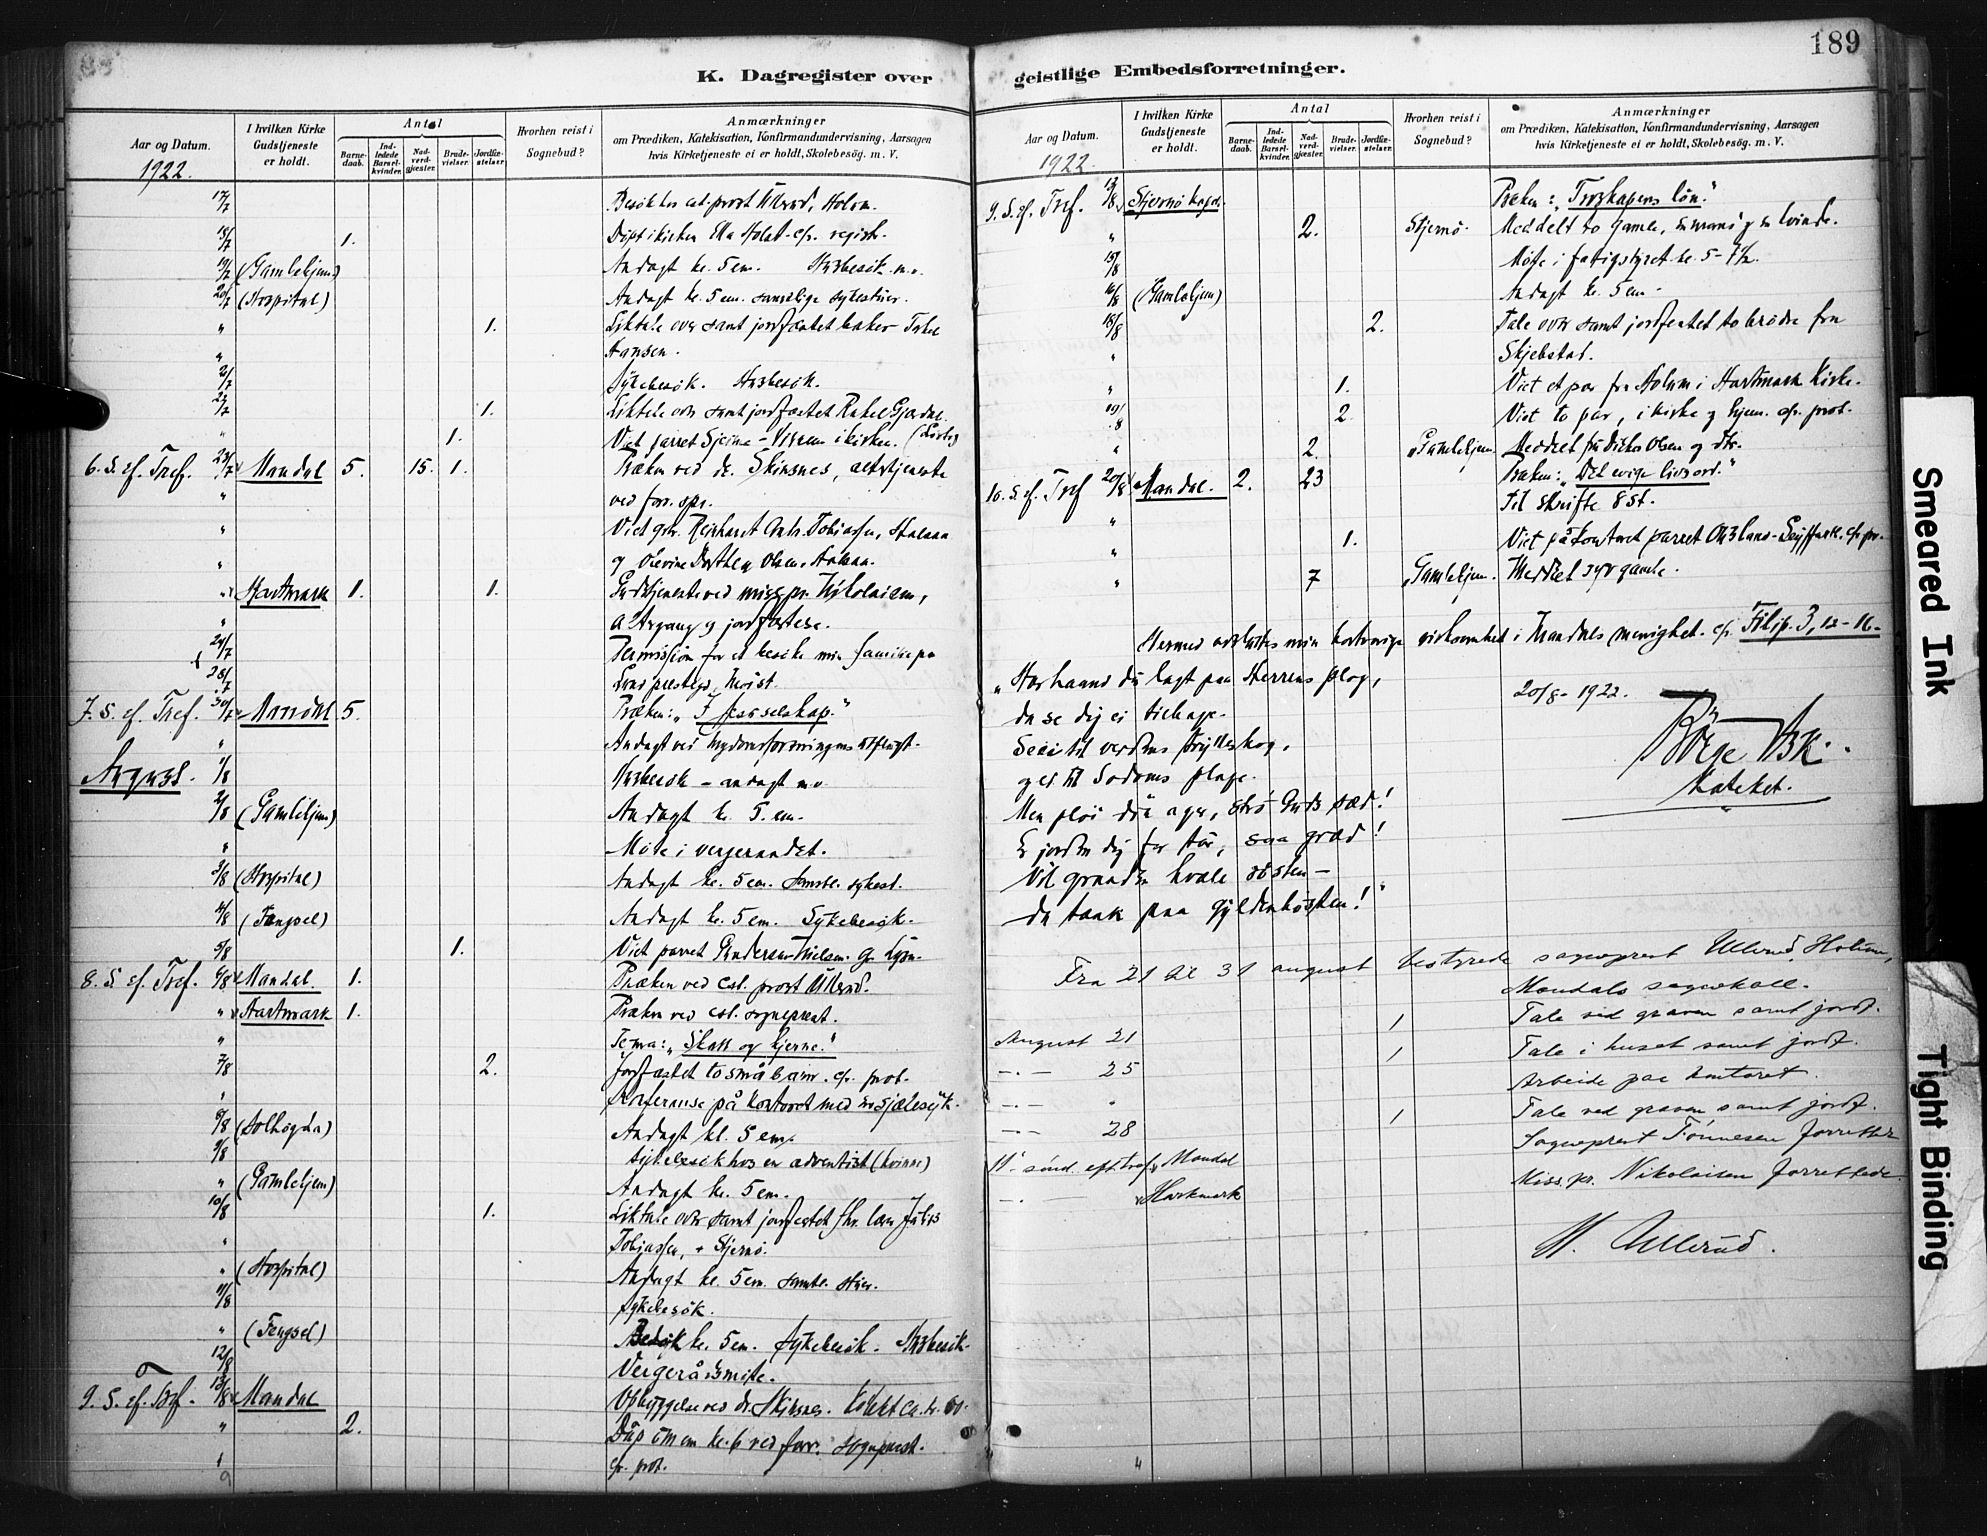 189
K. Dagregister over geistlige Embedsforretninger.
Aar og Datum.
1922
I hvilken Kirke Gudstjeneste er holdt.
Antal
Barnedaab.
Indledede Barselkvinder.
Nadverdgjester.
Brudevielser.
Jordfæstelser.
Hvorhen reist i Sognebud?
Anmærkninger
om Prædiken, Katekisation, Konfirmandundervisning, Aarsagen
hvis Kirketjeneste ei er holdt, Skolebesøg. m. V.
17/7 Besök hos cst. prost Ullerud, Holum.
18/7 1. Döpt i kirken
19/7 (Gamlehjem) Andagt kl. 5 em. Husbesök m.v.
20/7 (Hospital) Andagt kl. 5 em. samtlige sykestuer.
" 1. Liktale over samt jordfæstet baker
" Hansen.
21/7 Sykebesök. Husbesök.
22/7 1. Liktale over samt jordfæstet Rakel Gjerdal.
" 1. Viet parret i kirken.
6. S. ef. Tref. 23/7 Mandal 5. 15. 1. Præken ved dr. Skinsnes, altertjeneste
" ved forr. spr.
" Viet
" og
" Hartmark 1. 1. Gudstjeneste ved miss.pr. Nikolaisen,
" altergang og jordfæstelse.
24/7 Permission for at besöke min familie paa
28/7
7. S. ef. Tref. 30/7 Mandal 5. Præken: "I Jesu selskap."
" Andagt ved ungdomsforeningens utflugt.
August. 1/8 Husbesök - andagt m.v.
2/8 (Gamlehjem) Andagt kl. 5. em.
" Möte i vergeraadet.
3/8 (Hospital) Andagt kl. 5 em. samtl. sykest.
4/8 (Fængsel) Andagt kl. 5 em. Sykebesök.
5/8 1. Viet parret Gundersen-Nielsen.
8. S. ef. Tref. 6/8 Mandal. 1. Præken ved cst. prost Ullerud.
" Hartmark 1. Præken ved cst. sogneprest.
" Tema: "Skall og kjerne."
7/8 2. Jordfæstet to småbarn. cfr. prot.
" Konferanse på kontoret med en sjælesyk.
8/8 (Solhögda) Andagt kl. 5 em.
9/8 Sykebesök hos en adventist (kvinne)
" (Gamlehjem) Andagt kl. 5 em.
10/8 1. Liktale over samt jordfæstet
" Tobiassen, Stjernö.
" (Hospital) Andagt kl. 5 em. samtl. stuer.
11/8 Sykebesök.
" (Fengsel) kl. 5 em. Sykebesök. Husbesök.
12/8 Vergerådsmöte.
9. S. ef. Tref. 13/8 Mandal Opbyggelse ved dr. Skinsnes.
" 2. Dåp em kl. 6 ved forr. sogneprest.
" cfr. prot.
Aar og Datum.
1922.
I hvilken Kirke Gudstjeneste er holdt.
Antal
Barnedaab.
Indledede Barselkvinder.
Nadverdgjester.
Brudevielser.
Jordfæstelser.
Hvorhen reist i Sognebud?
Anmærkninger
om Prædiken, Katekisation, Konfirmandundervisning, Aarsagen
hvis Kirketjeneste ei er holdt, Skolebesøg. m. V.
9. S. ef. Tref. 13/8 Stjernö kapel. Præken: "Troskapens lön."
" 2. Stjernö. Meddelt to gamle, en mand og en kvinde.
15/8 Möte i fatigstyret kl. 5-7½.
16/8 (Gamlehjem) Andagt kl. 5 em.
18/8 2. Tale over samt jordfæstet to brödre fra
" Skjebstad.
" 1. Viet et par fra Holum i Hartmark Kirke.
19/8 2. Viet to par, i kirke og hjem. cfr. prot.
" 2. Gamlehjem. Meddelt fru Olsen og dtr.
10. S. ef. Tref 20/8 Mandal. 2. 23 Præken: "Det evige livs ord."
" Til skrifte 8 st.
" 1. Viet på kontoret parret
" 7 Gamlehjem. Meddelt syv gamle.
Hermed avsluttes min kortvarige virksomhet i Mandals menighet. cfr. Filip. 3, 12-16.
"Har haand du lagt paa Herrens plog,
da se dig ei tilbage.
Se ei til verdens trylleskog,
og ei til Sodoms plage.
Men plöi din ager, strö Guds sæd!
Er jorden dig for tör, saa græd!
Vil graaden kvæle rösten -
da tænk paa gyldenhösten!"
20/8 - 1922.
Börge Ask.
Kateket.
Fra 21 til 31 august bestyrede sogneprest Ullerud, Holum,
Mandals sognekall.
August 21 1 Tale ved graven samt jordf.
-"- 25 1 Tale i huset samt jordf.
-"- " Arbeide paa kontoret.
-"- 28 1 Tale ved graven samt jordf.
11. sönd. eft. tref. Mandal Sogneprest Tönnesen forretter
-"- Hartmark Miss. pr. Nikolaisen forrettede.
H. Ullerud.
Smeared Ink
Tight Binding